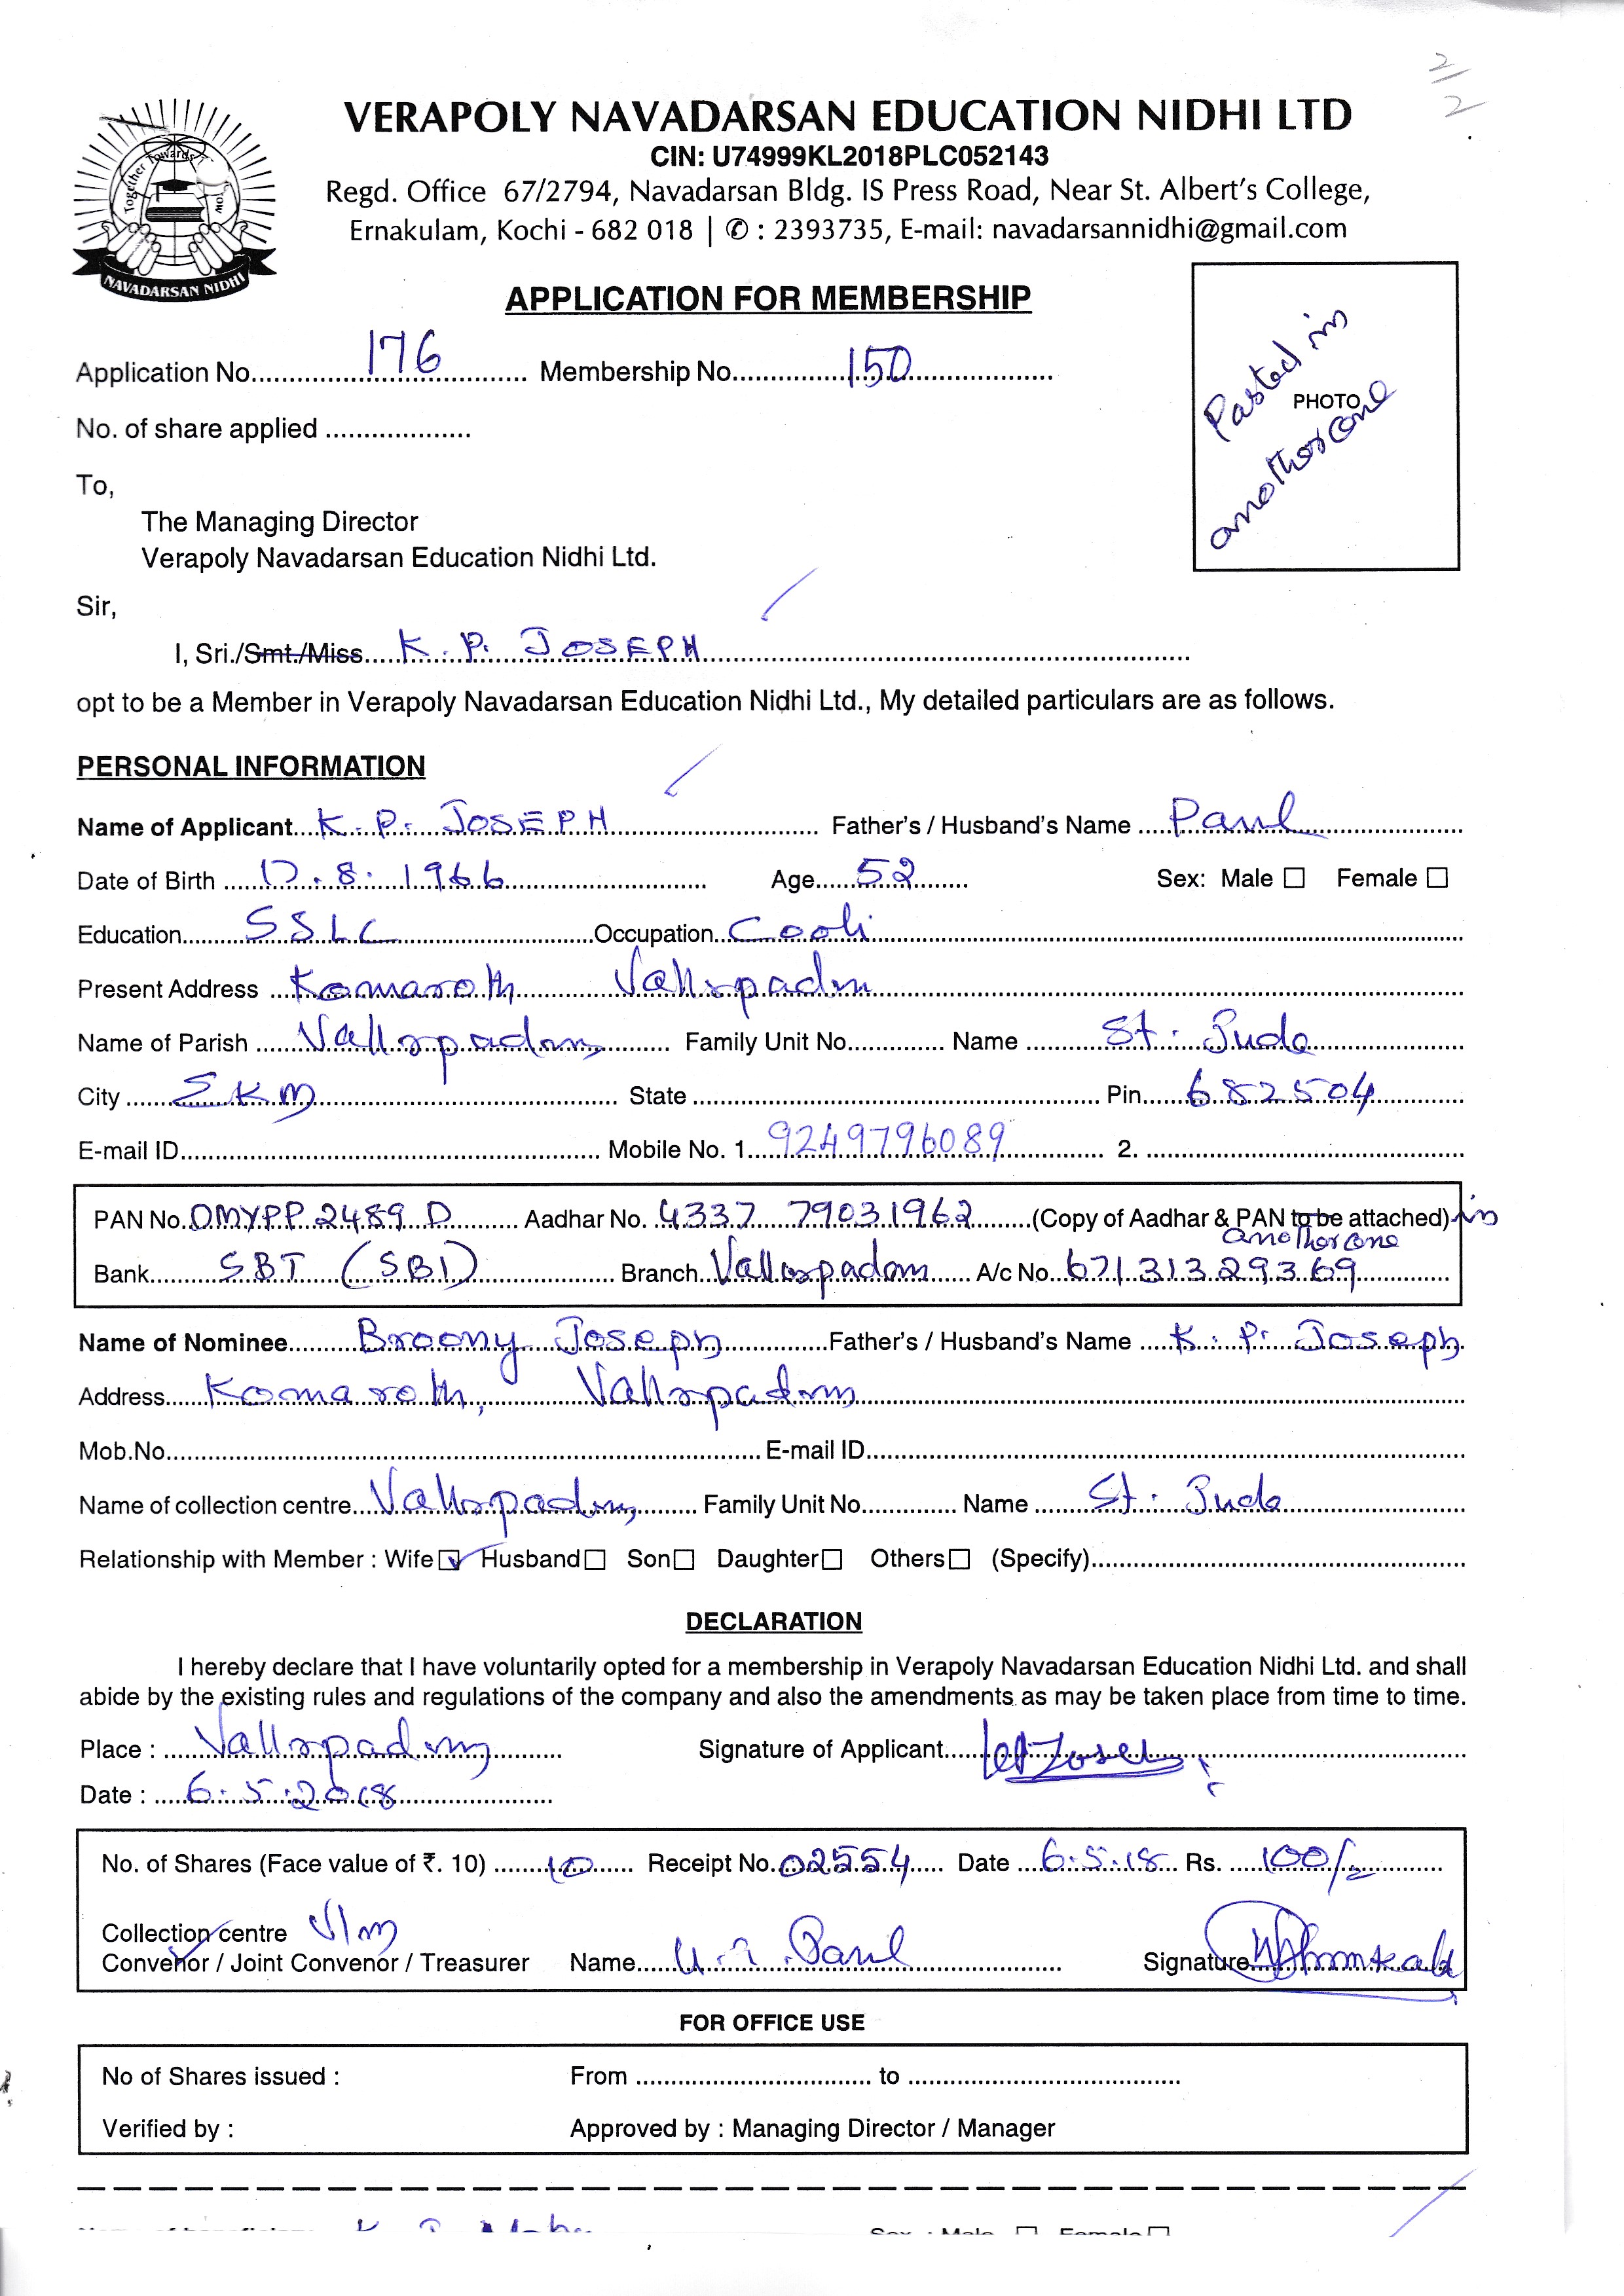 2/2
VERAPOLY NAVADARSAN EDUCATION NIDHI LTD
CIN: U74999KL2018PLC052143
Regd. Office 67/2794, Navadarsan Bldg. IS Press Road, Near St. Albert's College,
Ernakulam, Kochi - 682 018 | ✆ : 2393735, E-mail: navadarsannidhi@gmail.com
Together Towards
NAVADARSAN NIDHI
APPLICATION FOR MEMBERSHIP
Application No. 176 Membership No. 150
PHOTO
Pasted in
another one
No. of share applied
To,
The Managing Director
Verapoly Navadarsan Education Nidhi Ltd.
Sir,
I, Sri./Smt./Miss. K. P. JOSEPH
opt to be a Member in Verapoly Navadarsan Education Nidhi Ltd., My detailed particulars are as follows.
PERSONAL INFORMATION
Name of Applicant K. P. JOSEPH Father's / Husband's Name Paul
Date of Birth .8.1966 Age 52 Sex: Male ☐ Female ☐
Education SSLC Occupation Cooli
Present Address Vallarpadam
Name of Parish Vallarpadam Family Unit No. Name St. Jude
City EKM State Pin 682504
E-mail ID Mobile No. 1. 9249796089 2.
PAN No. OMYPP 2489 D Aadhar No. 4337 79031962 (Copy of Aadhar & PAN to be attached) in
another one
Bank SBT (SBI) Branch Vallarpadam A/c No. 67131329369
Name of Nominee Joseph Father's / Husband's Name K. P. Joseph
Address Vallarpadam
Mob.No. E-mail ID
Name of collection centre Vallarpadam Family Unit No. Name St. Jude
Relationship with Member : Wife ☑ Husband ☐ Son ☐ Daughter ☐ Others ☐ (Specify)
DECLARATION
I hereby declare that I have voluntarily opted for a membership in Verapoly Navadarsan Education Nidhi Ltd. and shall
abide by the existing rules and regulations of the company and also the amendments as may be taken place from time to time.
Place : Vallarpadam Signature of Applicant
Date : 6.5.2018
No. of Shares (Face value of ₹. 10) 10 Receipt No. 02554 Date 6.5.18 Rs. 100/-
Collection centre Vlm
Convenor / Joint Convenor / Treasurer Name Paul Signature
FOR OFFICE USE
No of Shares issued : From to
Verified by : Approved by : Managing Director / Manager